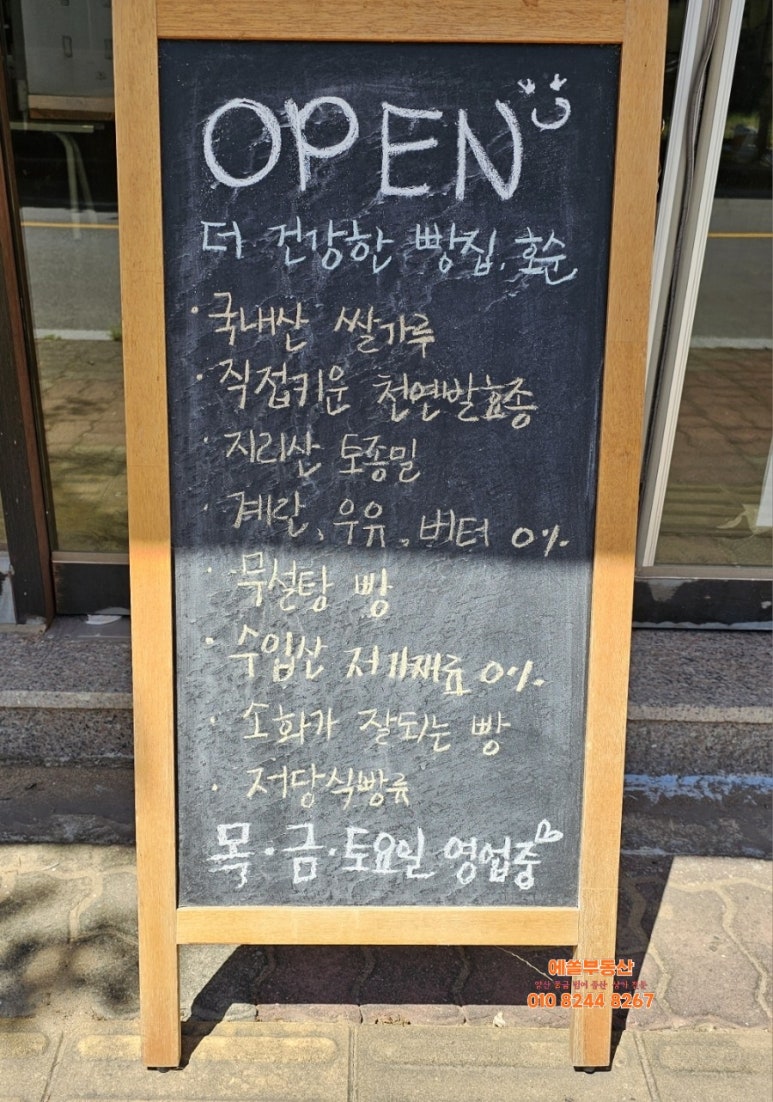 OPEN
더 건강한 빵집, 호순
· 국내산 쌀가루
· 직접키운 천연발효종
· 지리산 토종밀
· 계란, 우유, 버터 0%
· 무설탕 빵
· 수입산 저가재료 0%
· 소화가 잘되는 빵
· 저당식빵류
목·금·토요일 영업중
에쏠부동산
양산 증금 범어 물산 상가 전문
010 8244 8267